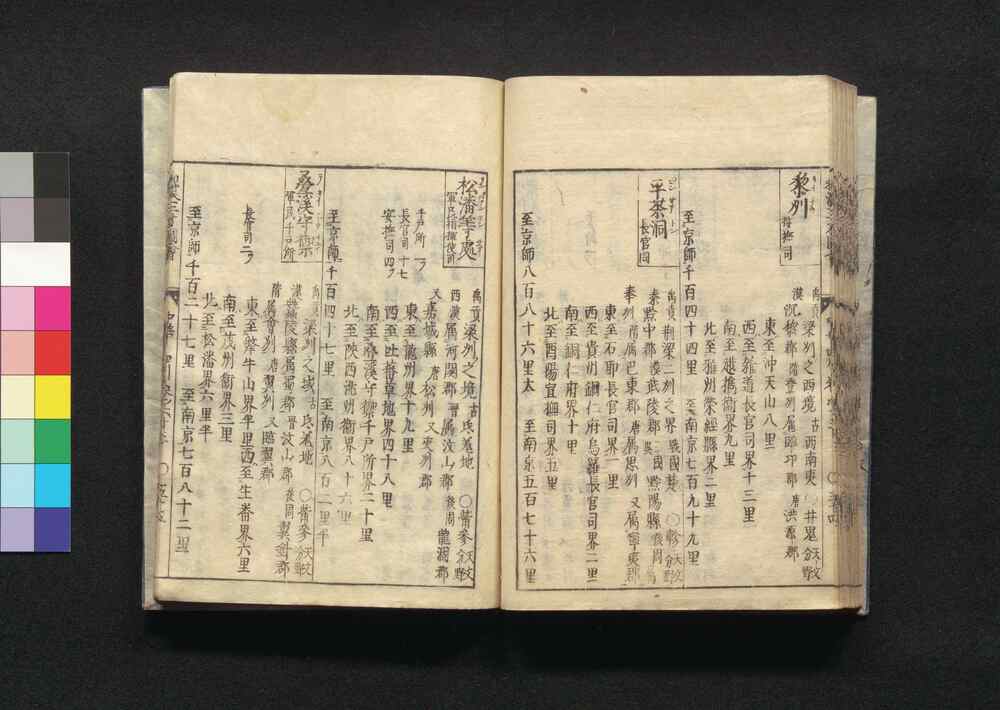 黎州
安撫司
禹貢梁州之西境 古西南夷 ○井鬼分野
漢沉黎郡 属臨邛郡 唐洪源郡
東至沖天山八里
西至雜道長官司界十三里
南至越嶲衞界九里
北至雅州榮經縣界二里
至京師千百四十四里 至南京七百九十九里
平茶洞
長官司
禹貢荊梁二州之界 戰國楚 ○軫分野
秦黔中郡 漢武陵郡 吳黔陽縣
奉州 属巴東郡 唐属思州 又属寧夷郡
東至石耶長官司界一里
西至貴州銅仁府烏羅長官司界二里
南至銅仁府界十里
北至酉陽宣撫司界五里
至京師八百八十六里太 至南京五百七十六里
松潘等処
軍民指揮使司
千戸所 一ツ
長官司 十七
安撫司 四ツ
禹貢梁州之境 古氐羌地 ○觜參分野
西漢属河関郡 晉属汶山郡 後周龍涸郡
又嘉城縣 唐松州 又交州郡
東至龍州界十九里
西至吐蕃草地界四十八里
南至疊溪守禦千戸所界二十里
北至陝西洮州衞界八十六里
至京師千百四十七里 至南京八百二里半
疊溪守禦
軍民千戸所
長官司二ツ
禹貢梁州之域 古氐羌地 ○觜參分野
漢蠶陵縣属蜀郡 晉汶山郡 後周翼針郡
隋属會州 唐翼州 又臨翼郡
東至犛牛山界半里西至生番界六里
南至茂州衞界三里
北至松潘界六里半
至京師千百二十七里 至南京七百八十二里